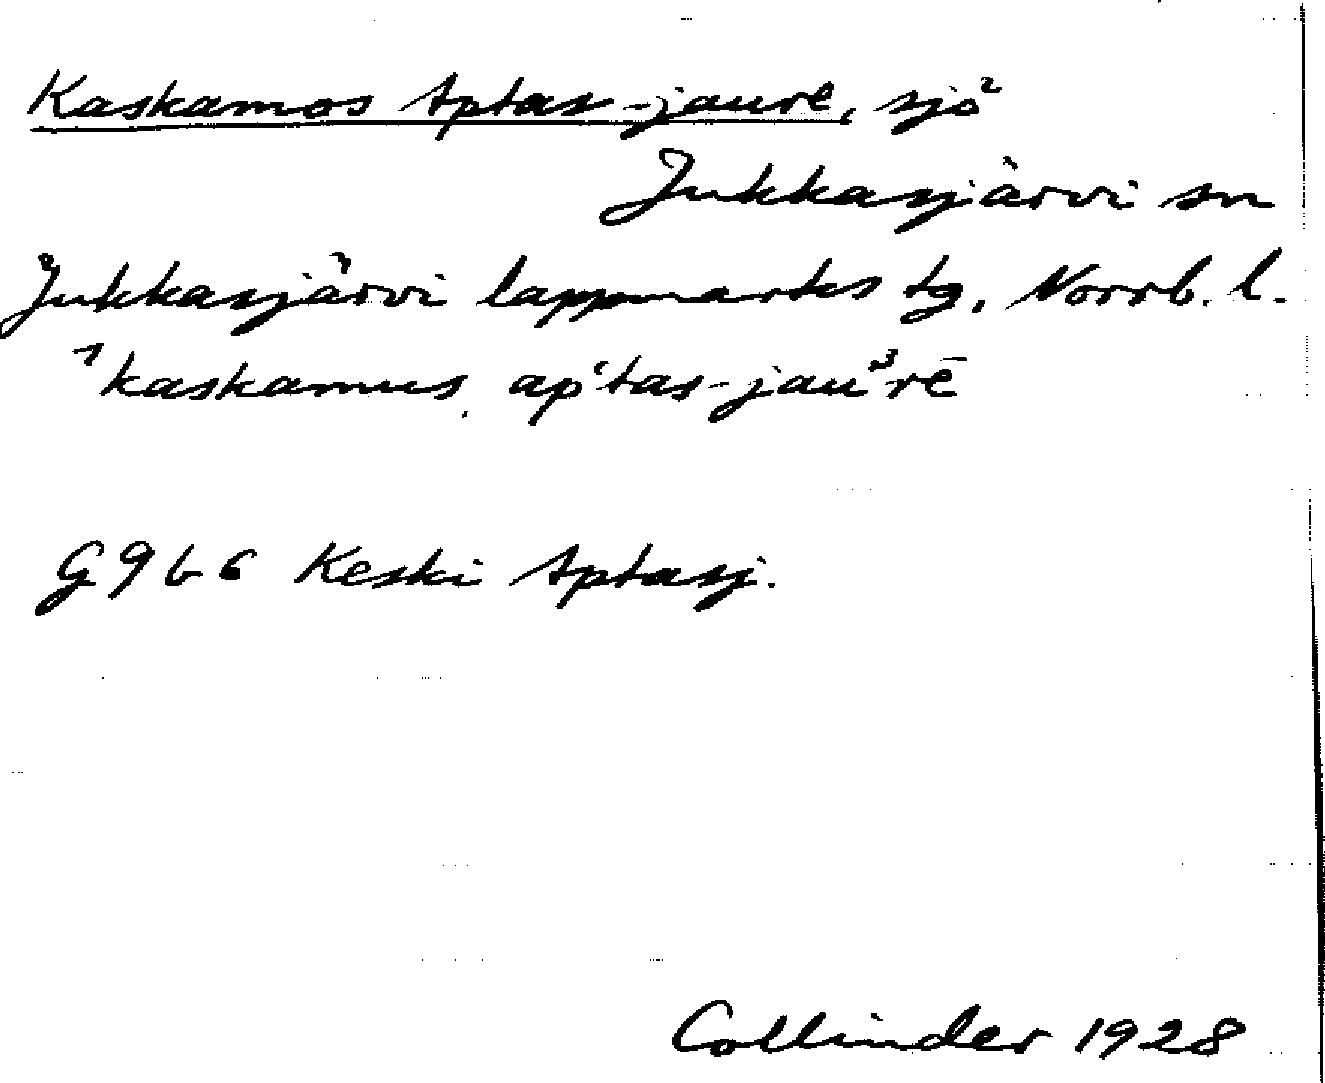 Kaskamos Aptas-jaure, sjö
Jukkasjärvi sn
Jukkasjärvi lappmarks tg. Norrb. l.
kaskamus ap‘tas-jau³rē
G 9 b c Keski Aptasj.
Collinder 1928